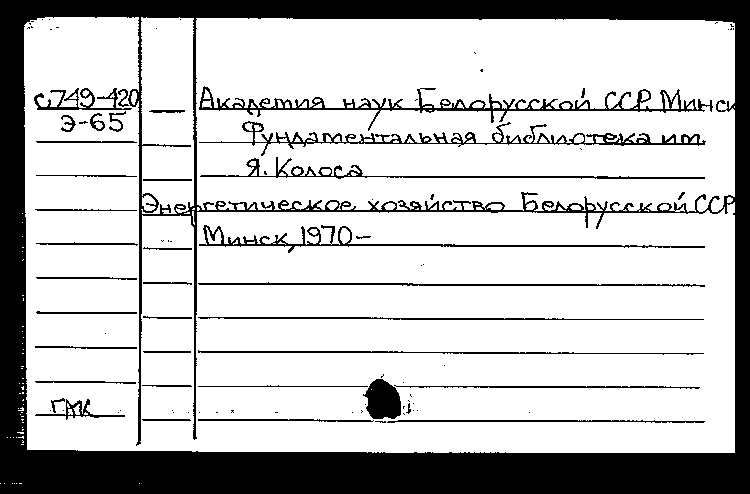 с.749-420
Э-65
Академия наук Белорусской ССР. Минск
Фундаментальная библиотека им.
Я. Колоса
Энергетическое хозяйство Белорусской ССР.
Минск, 1970-
ГАК